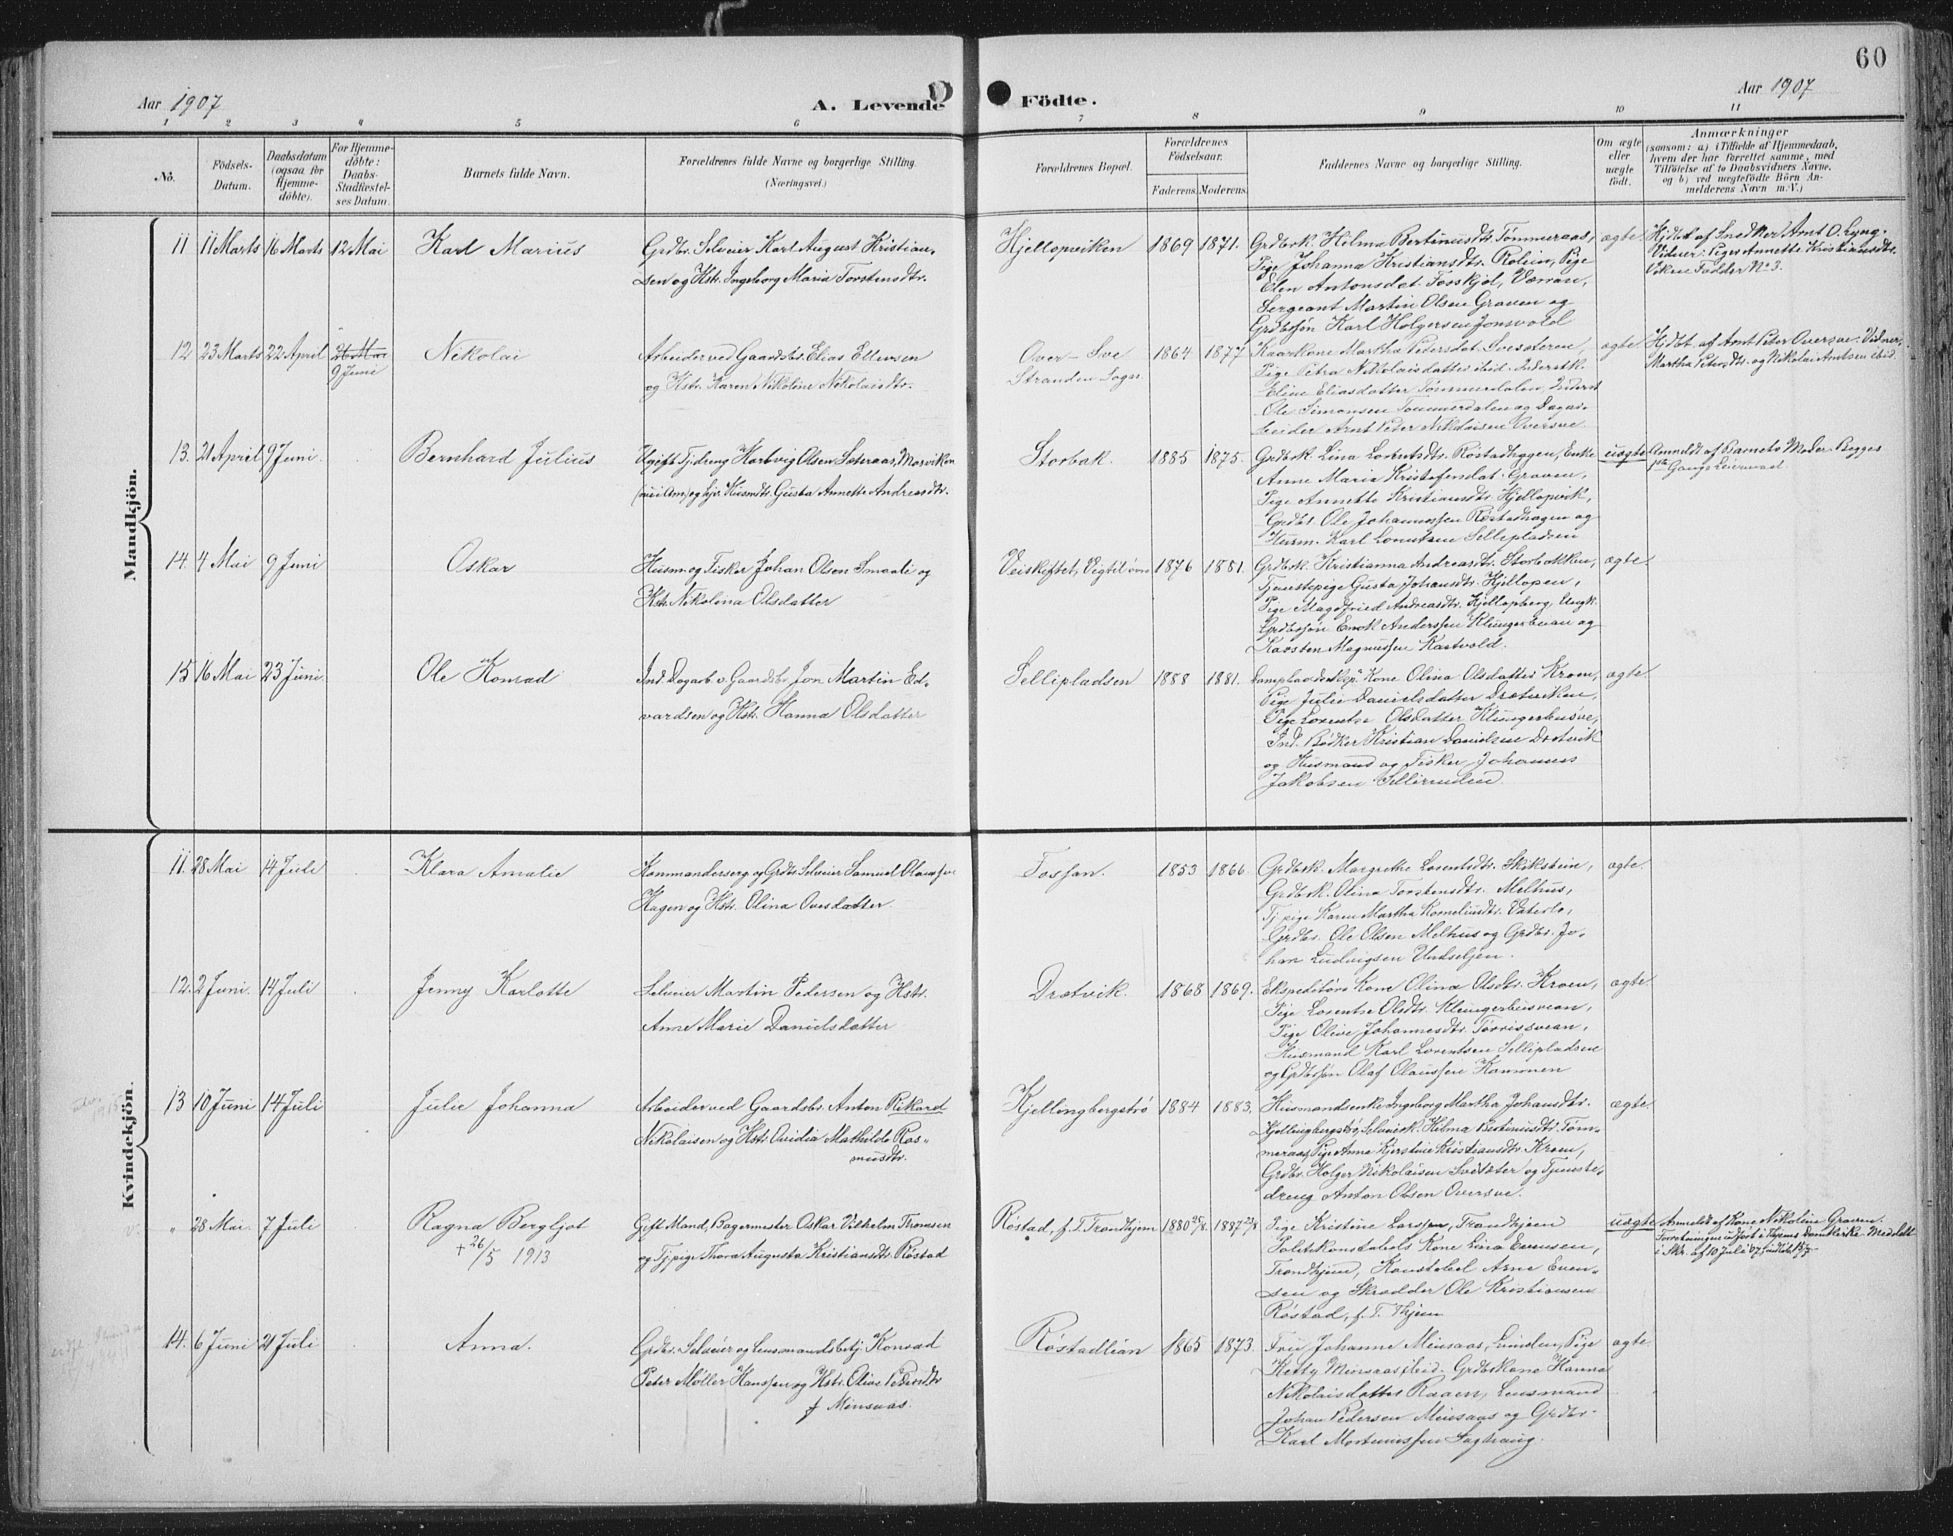 60
Aar 1907
A. Levende Födte.
Aar 1907
1 2 3 4 5 6 7 8 9 10 11
No.
Födsels-Datum.
Daabsdatum (ogsaa for Hjemme-döbte).
For Hjemme-döbte: Daabs-Stadfæstel-ses Datum.
Barnets fulde Navn.
Forældrenes fulde Navne og borgerlige Stilling.
(Næringsvei.)
Forældrenes Bopæl.
Forældrenes Födselsaar.
Faderens. Moderens.
Faddernes Navne og borgerlige Stilling.
Om ægte eller uægte födt.
Anmærkninger
(saasom: a) i Tilfælde af Hjemmedaab,
hvem der har forrettet samme, med
Tilföielse af to Daabsvidners Navne,
og b) ved uægtefödte Börn An-
melderens Navn m. V.)
Mandkjön.
11 11 Marts 16 Marts 12 Mai Karl Marius
Grdbr. Selveier Karl August Kristian-
sen og Hstr. Ingeborg Maria Torstensdtr.
Hjellopviken 1869 1871.
Grdbrk. Hilma Bertinusdtr. Tømmeraas,
Pige Johanna Kristiansdtr. Rolein, Pige
Elen Antonsdat. Fosskjol, Værran,
Sergeant Martin Olsen Graven og
Grdbrsøn Karl Holgersen Jonsvold
ægte
Hjdøbt af Snedker Arnt O. Lyng.
Vidner: Piger Annette Kristiansdtr.
Viken Fadder No 3.
12 23 Marts 22 April 26 Mai
9 Juni
Nikolai
Arbeider ved Gaardsbr. Elias Ellevsen
og Hstr. Karen Nikoline Nikolaisdtr.
Over-Sve
Stranden Sogn
1864 1877
Kaarkone Martha Pedersdat. Svesæteren,
Pige Petra Nikolaisdatter ibid. Inderstk.
Eline Eliasdatter Tømmerdalen, Inderst
Ole Simonsen Tømmerdalen og Dagar-
beider Arnt Peter Nikolaisen Oversve
ægte
Hjdøbt af Arnt Peter Oversve. Vidner
Martha Petersdtr. og Nikolai Arntsen ibid.
13. 21 April 9 Juni Bernhard Julius
Ugift Tjdreng Hartvig Olsen Sæteraas, Mosviken
og hjv. Husmdtr. Gusta Annette Andreasdtr.
Storbak. 1885 1875.
Grdbrk. Lina Lorentsdtr. Røstadhggen, Enke
Anne Maria Kristofersdat. Graven,
Pige Annette Kristiansdtr. Hjellopvik,
Grdbr. Ole Johannessen Røstadhagen og
Husm. Karl Lorentsen Sellipladsen
uægte
Anmeldt af Barnets Moder. Begges
1ste Gangs Leiermaal
14. 4 Mai 9 Juni Oskar
Husm. og Fisker Johan Olsen Smaali og
Hstr. Nikolina Olsdatter
Veiskiftet, Vigtiløm 1876 1881.
Grdbrk. Kristianna Andreasdtr. Storbakken,
Tjenestepige Gusta Johansdtr. Hjellopen,
Pige Magdfried Andreasdtr. Hjellopberg, Ungk.
Grdbrsøn Enok Anderssen Klingerbuan og
Karsten Magnussen Rastvold.
ægte.
15 16 Mai 23 Juni Ole Konrad
Ind. Dagarb. v. Gaardsbr. Jon Martin Ed-
vardsen og Hstr. Hanna Olsdatter
Sellipladsen 1888 1881.
Kone Olina Olsdatter Kroen,
Pige Julie Danielsdatter Drætviken,
Pige Lorentse Olsdatter Klingerbusve,
Ind. Bødker Kristian Danielsen Drætvik
og Husmand og Fisker Johannes
Jakobsen Selliruden
ægte.
Kvindekjön.
11. 28 Mai 14 Juli Klara Amalie
Kommandersergt. og Grdbr. Selveier Samuel Olaussen
Hagen og Hstr. Olina Ovesdatter.
Fossan. 1853 1866.
Grdbrk. Margrethe Lorentsdtr. Skikstein,
Grdbrk. Olina Torstensdtr. Melhus,
Tj.pige Karen Martha Korneliusdtr. Vaterlo,
Grdbr. Ole Olsen Melhus og Grdbr. Jo-
han Ludvigsen Undseljen.
ægte.
12. 2 Juni. 14 Juli Jenny Karlotte
Selveier Martin Pedersen og Hstr.
Anne Marie Danielsdatter
Drætvik. 1868 1869.
Ekspeditørs Kone Olina Olsdtr. Kroen,
Pige Lorentse Olsdtr. Klingerbusvean,
Pige Olise Johannesdtr. Tørrissvean,
Husmand Karl Lorentsen Sellipladsen
og Grdbrsøn Olaf Olaussen Hammeren
ægte.
13 10 Juni 14 Juli Julie Johanna
Arbeider ved Gaardsbr. Anton Rikard
Nikolaisen og Hstr. Ovidia Mathilde Ras-
musdtr.
Kjellingbergstrø 1884 1883.
Husmandsenke Ingeborg Martha Johansdtr.
Kjellingbergstrø, Selveierk. Hilma Bertinusdtr. Tøm-
meraas, Pige Anna Kjerstine Kristiansdtr. Kroen,
Grdbr. Holger Nikolaisen Svesæter og Tjeneste-
dreng Anton Olsen Oversve.
ægte
" 28 Mai. 7 Juli Ragna Bergljot
+ 26/5 1913
Gift Mand, Bagermester Oskar Vilhelm Tromsen
og Tj.pige Thora Augusta Kristiansdtr. Røstad
Røstad, f. T. Trondhjem 1880 1887
Pige Kristine Larssen, Trondhjem
Politikonstabels Kone Lina Evensen,
Trondhjem, Konstabel Arne Even-
sen og Skrædder Ole Kristiansen
Røstad, f. T. Thjem
uægte
Anmeldt af Kone Nikoline Graven.
Forretningen udført i Thjems Domkirke. Meddelt
i Skr. af 10 Juli 07
14. 6 Juni 21 Juli Anna.
Grdbr. Selveier og Lensmandsbetj. Konrad
Peter Møller Hanssen og Hstr. Olise Pedersdtr.
f. Minsaas.
Røstadlian 1865 1873.
Fru Johanne Minsaas, Linden, Pige
Ketty Minsaas ibid. Grdbrkone Hanna
Nikolaisdatter Raaen, Lensmand
Johan Pedersen Minsaas og Grdbr.
Karl Mortenssen Sagtraug.
ægte.